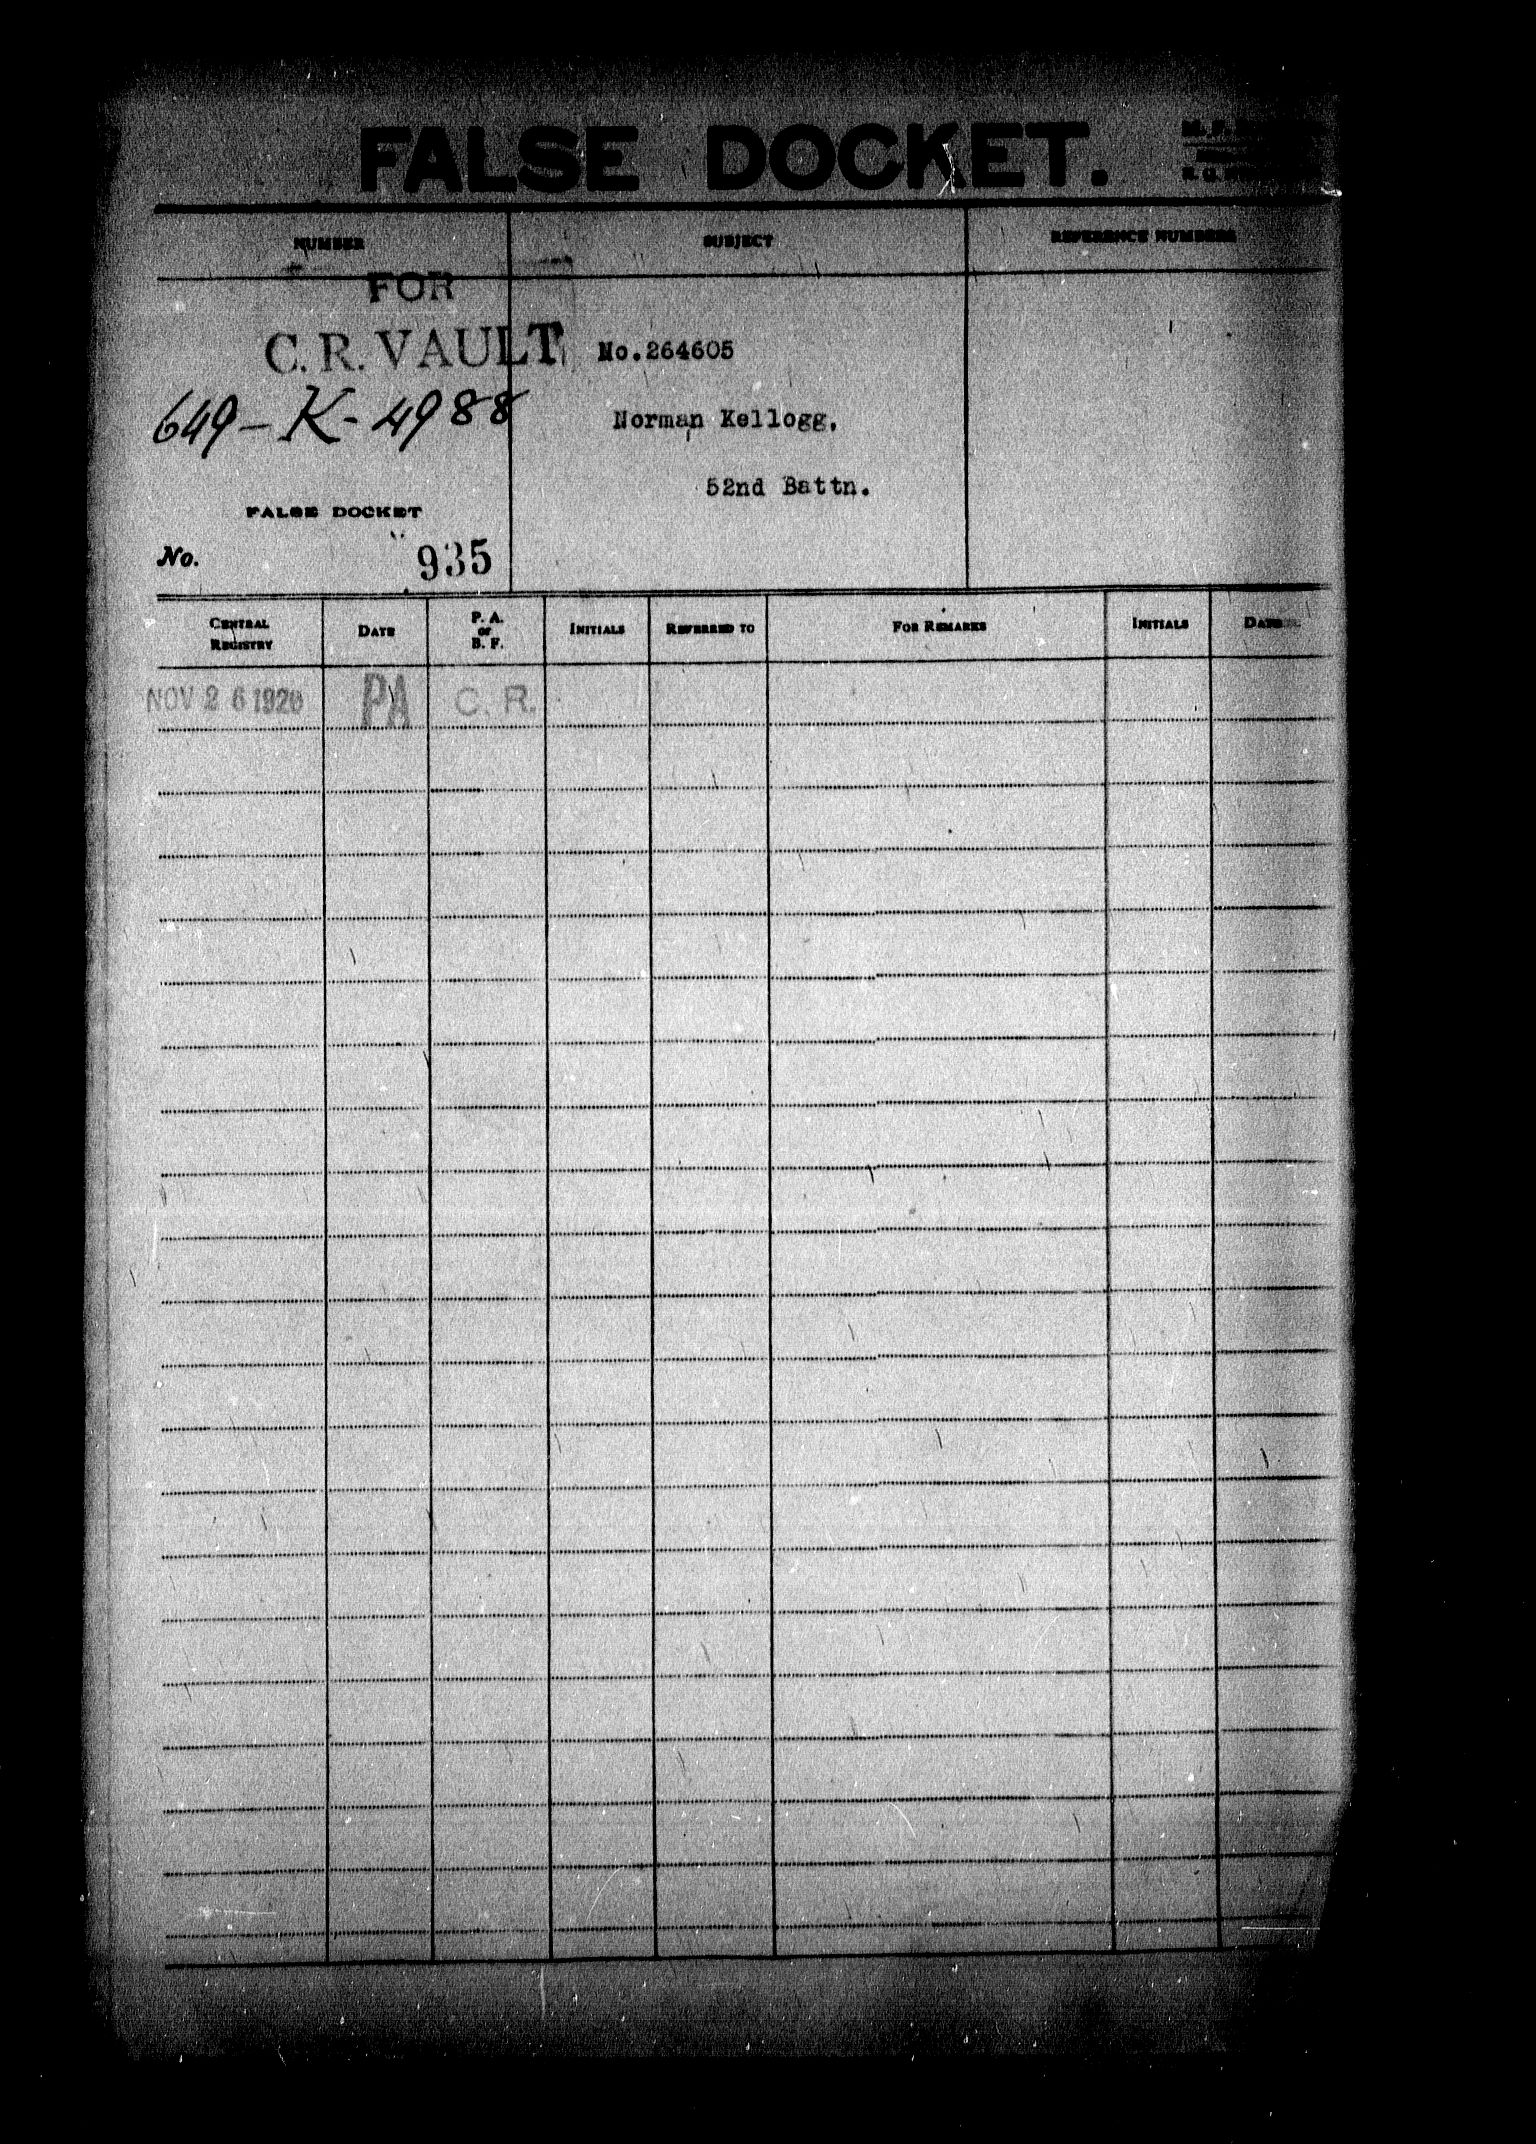 FALSE DOCKET.
NUMBER SUBJECT REFERENCE NUMBERS
FOR
C. R. VAULT No.264605
649-K-4988 Norman Kellogg.
52nd Battn.
FALSE DOCKET
No. 935
CENTRAL REGISTRY DATE P. A. or B. F. INITIALS REFERRED TO FOR REMARKS INITIALS DATE
NOV 26 1920 PA C. R.